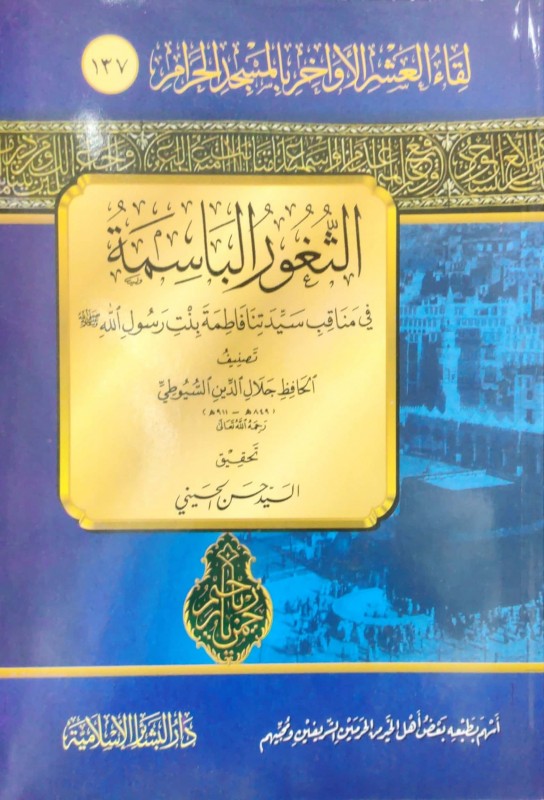 لِقَاءُ العَشْرِ الأَوَاخِرِ بِالمَسْجِدِ الحَرَامِ
١٣٧
الثُّغُورُ البَاسِمَةُ
فِي مَنَاقِبِ سَيِّدَتِنَا فَاطِمَةَ بِنْتِ رَسُولِ اللهِ ﷺ
تَصْنِيفُ
الحَافِظِ جَلَالِ الدِّينِ السُّيُوطِيِّ
(٨٤٩هـ - ٩١١هـ)
رَحِمَهُ اللهُ تَعَالَى
تَحْقِيق
السَّيِّد حَسَن الحُسَيْنِي
أَسْهَمَ بِطَبْعِهِ بَعْضُ أَهْلِ الخَيْرِ مِنَ الحَرَمَيْنِ الشَّرِيفَيْنِ وَمُحِبِّيهِم
دَارُ البَشَائِرِ الإِسْلَامِيَّةِ